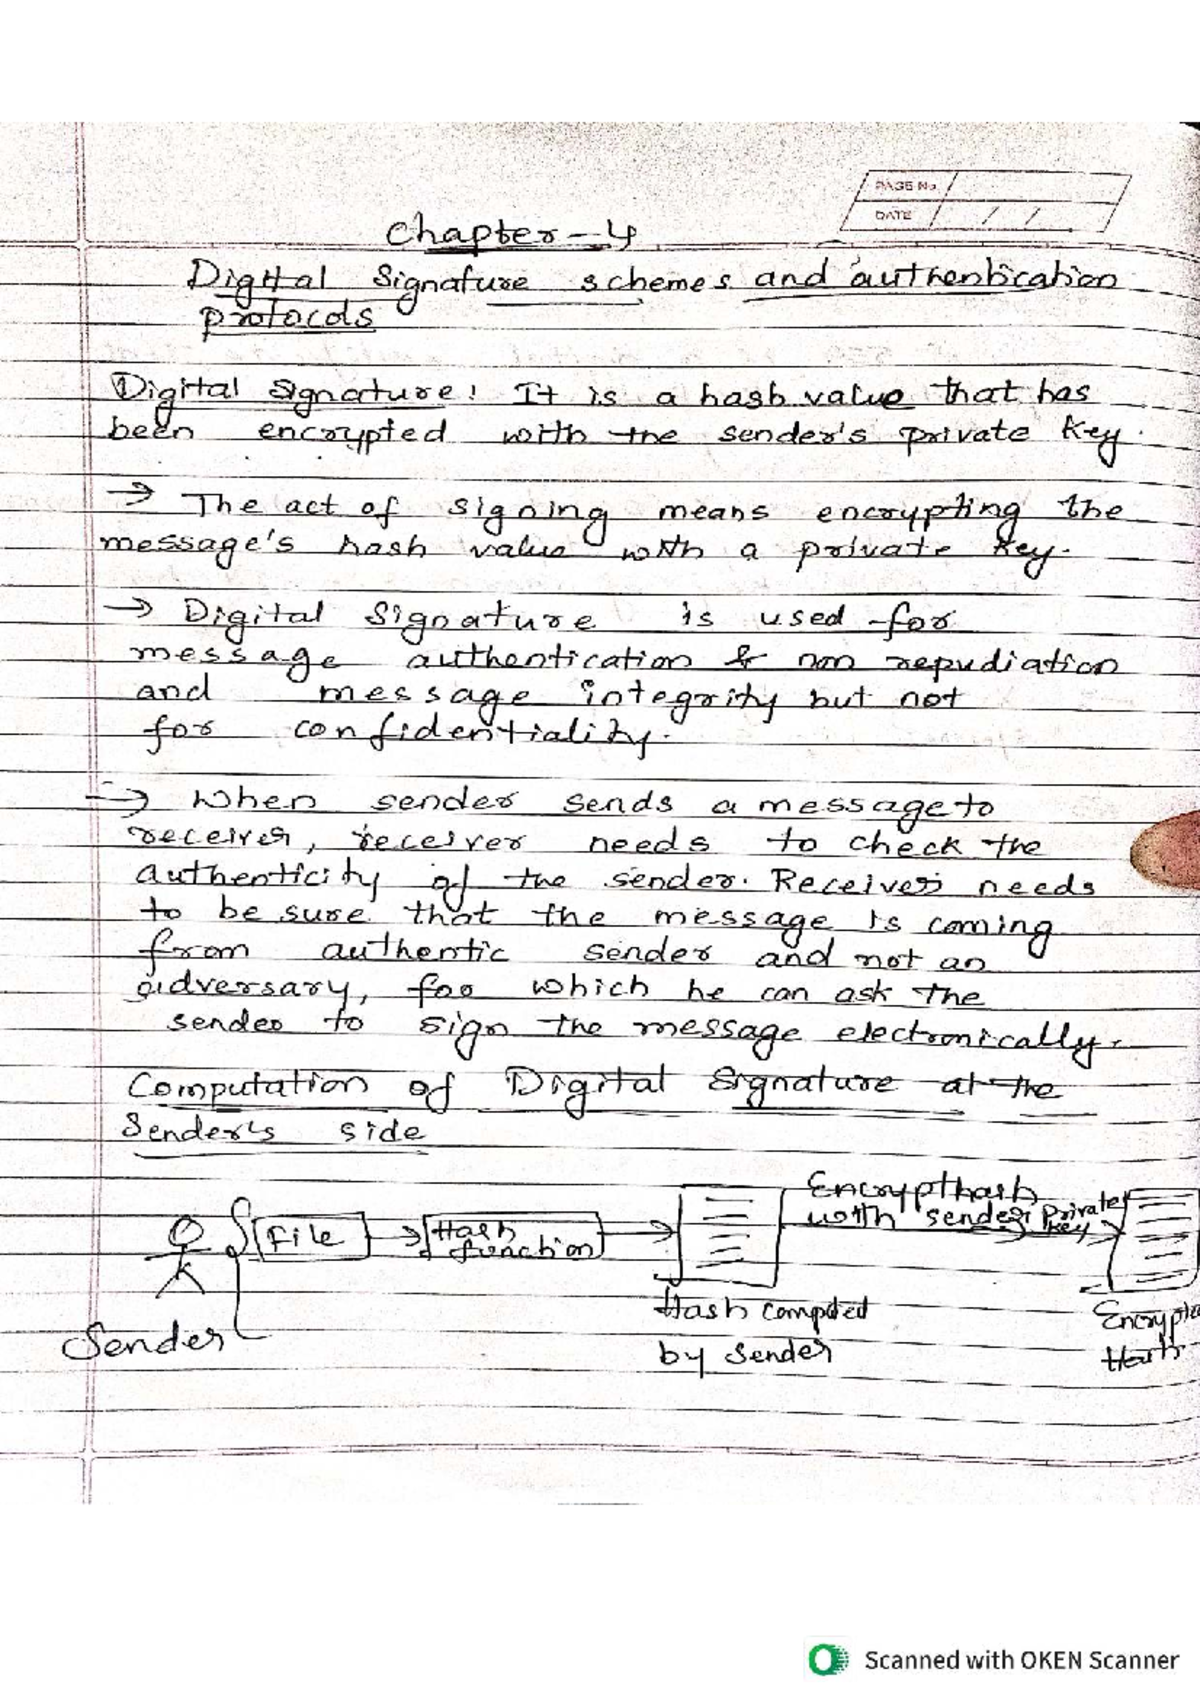 PAGE No.
DATE / / /
Chapter - 4
Digital Signature schemes and authentication
protocols
Digital Signature: It is a hash value that has
been encrypted with the sender's private key.
→ The act of signing means encrypting the
message's hash value with a private key.
→ Digital Signature is used for
message authentication & non repudiation
and message integrity but not
for confidentiality.
→ When sender sends a message to
receiver, receiver needs to check the
authenticity of the sender. Receiver needs
to be sure that the message is coming
from authentic sender and not an
adversary, for which he can ask the
sender to sign the message electronically.
Computation of Digital Signature at the
Sender's side
Encrypt hash
with sender private
key
File → Hash
function
Sender
Hash computed
by sender
Hash
Scanned with OKEN Scanner